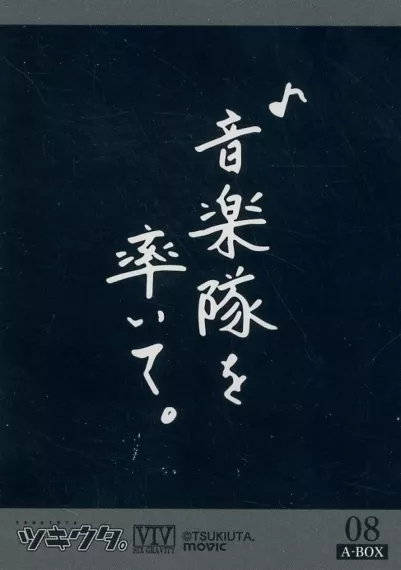 ♪
音楽隊を
率いて。
TSUKIUTA
ツキウタ。
VIV
SIX GRAVITY
©TSUKIUTA.
movic
08
A-BOX